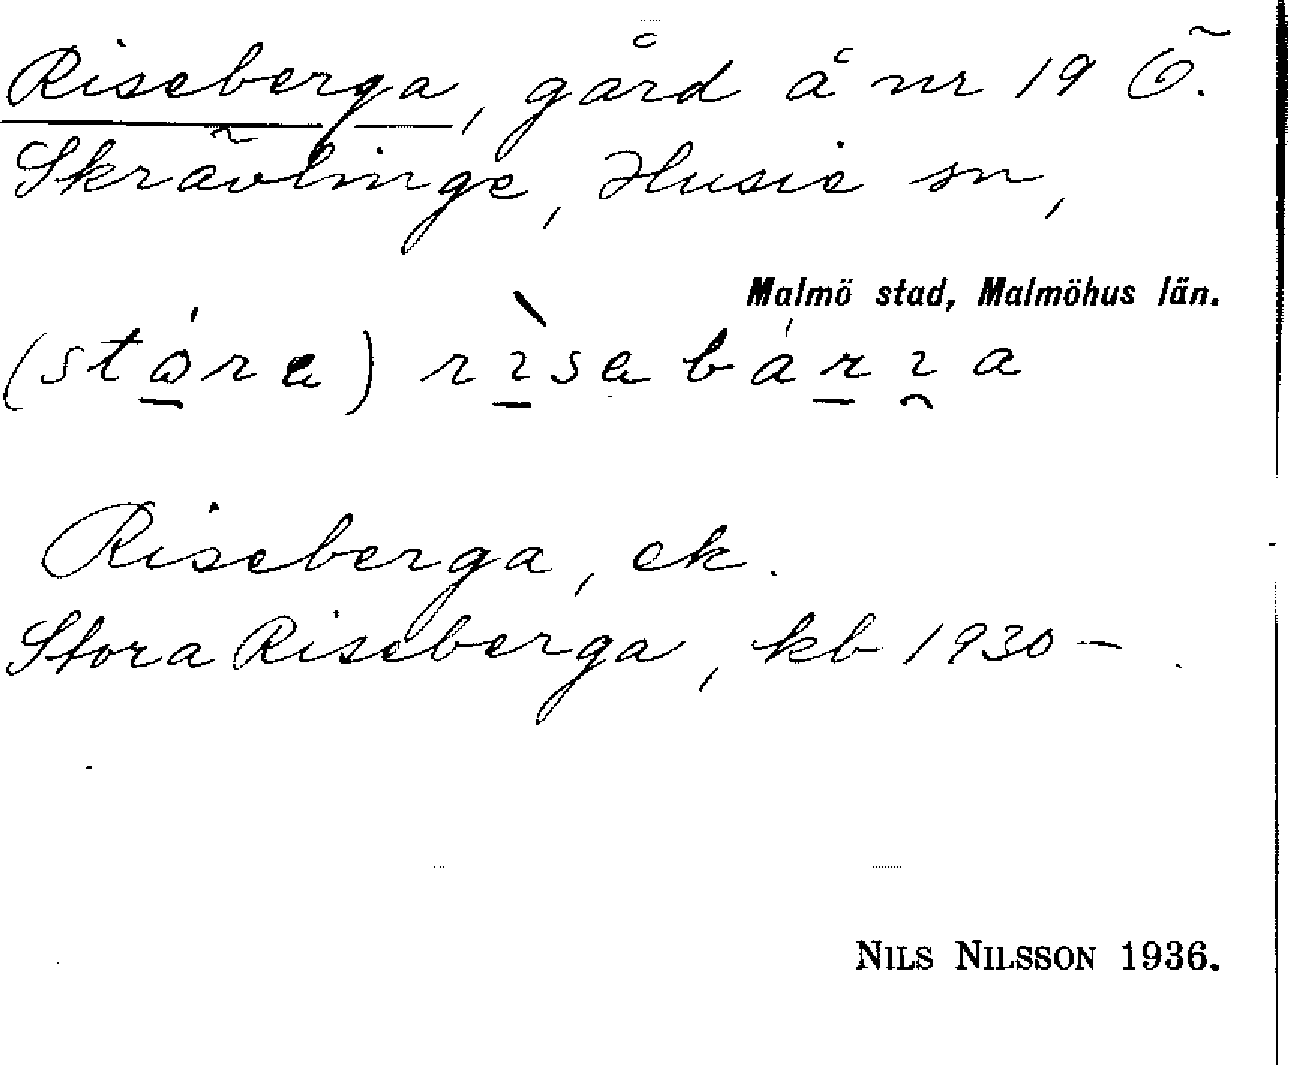 Riseberga, gård å nr 19 Ö.
Skrävlinge, Husie sn,
Malmö stad, Malmöhus län.
(stóra) rìsabárɪ̯a
Riseberga, ek.
Stora Riseberga, kb 1930 –
NILS NILSSON 1936.